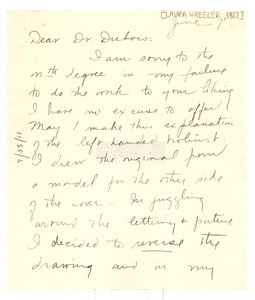 [LAURA WHEELER, 1927]
June
Dear Dr Dubois:
I am sorry to the
nth degree in my failure
to do the work to your liking
I have no excuse to offer
May I make this explanation
of the left handed violinist
I drew the original from
a model for the other side
of the cover. In juggling
around the lettering + picture
I decided to reverse the
drawing and in my